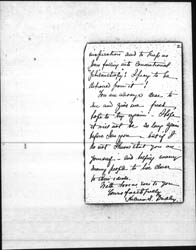 inspiration and to keep us
from falling into conventional
philanthropy! I pray to be
delivered from it!
You are always dear to
me and give me fresh
hope to try again. I hope
it will not be so long again
before I see you but I
do not know that you are
yourself - and helping
many people to live closer
to their ideals.
With love as ever to you
Yours faithfully